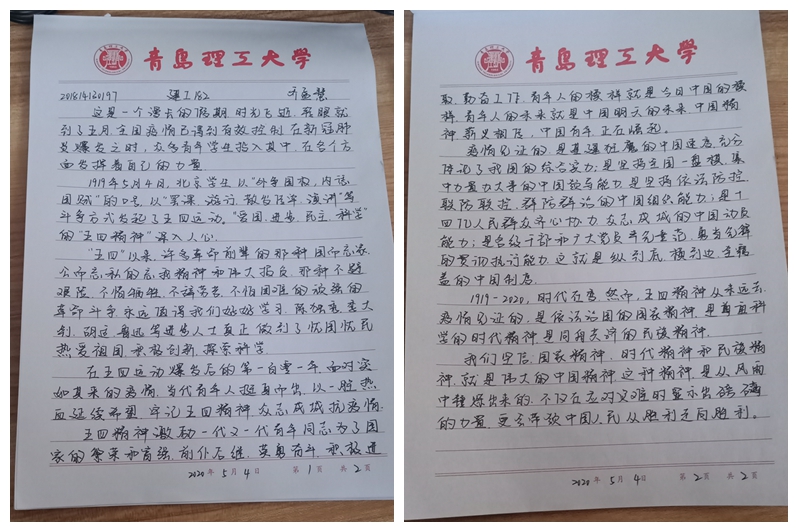 青岛理工大学
201814130197 建工182
这是一个漫长的假期,时光飞逝,转眼就
到了五月,全国疫情已得到有效控制,在新冠肺
炎爆发之时,众多青年学生投入其中,在各个方
面发挥着自己的力量
1919年5月4日,北京学生以“外争国权,内惩
国贼”的口号,以“罢课,游行,散发传单,演讲”等
斗争方式发起了五四运动。“爱国,进步,民主,科学”
的“五四精神”深入人心.
“五四”以来,许多革命前辈的那种国而忘家
公而忘私的忘我精神和伟大抱负,那种不避
艰险,不怕牺牲,不辞劳苦,不怕困难的顽强的
革命斗争,永远值得我们好好学习.陈独秀,李大
钊,胡适,鲁迅等进步人士真正做到了忧国忧民
热爱祖国,积极创新,探索科学.
在五四运动爆发后的第一百零一年,面对突
如其来的疫情,当代青年人挺身而出,以一腔热
血延续希望,牢记五四精神,众志成城抗疫情.
五四精神激励一代又一代有年同志为了国
家的繁荣和富强,前仆后继,英勇奋斗,积极进
2020年5月4日 第1页 共2页
青岛理工大学
取,勤奋工作,青年人的模样就是今日中国的模
样,青年人的未来就是中国明天的未来,中国精
神薪火相传,中国青年正在崛起.
疫情见证的是其速玨魔的中国速度,充分
体现了我国的综合实力;是坚持全国一盘棋,集
中力量办大事的中国效与能力,是坚持依法防控
联防联控,群防群治的中国组织能力;是十
四亿人民群众齐心协力,众志成城的中国动员
能力;是各级干部和广大党员率先垂范,勇当先锋
的贯彻执行能力.这就是纵到底,横到边,全覆
盖的中国制度.
1919-2020,时代在变,然而,五四精神从未远去.
疫情见证的,是依法治国的国家精神,是尊重科
学的时代精神,是同舟共济的民族精神.
我们坚信,国家精神,时代精神和民族精
神,就是伟大的中国精神,这种精神,是从风雨
中锤炼出来的,不仅在应对灾难时显示出磅礴
的力量,更会带领中国人民从胜利走向胜利。
2020年5月4日 第2页 共2页